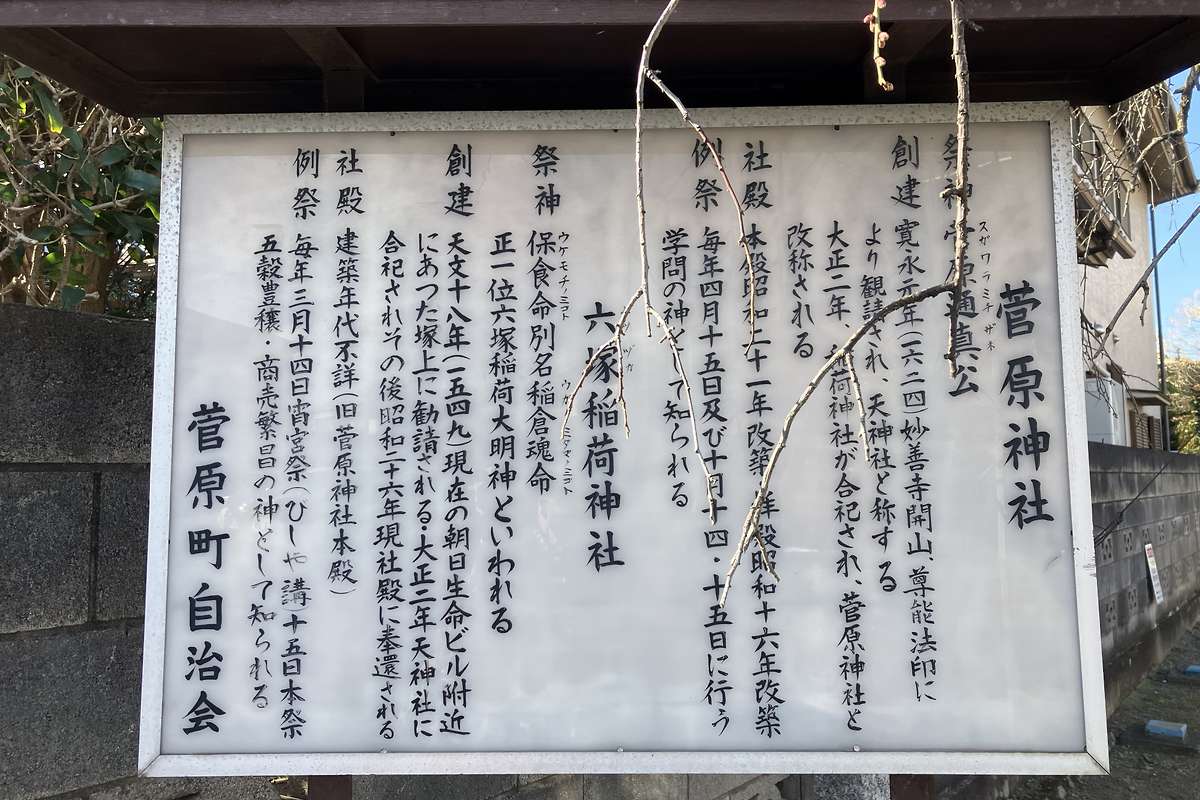 菅原神社
スガワラミチザネ
祭神 菅原道真公
創建 寛永元年(一六二四)妙善寺開山、尊能法印に
より観請され、天神社と称する
大正二年、稲荷神社が合祀され、菅原神社と
改称される
社殿 本殿昭和二十一年改築 拝殿昭和十六年改築
例祭 毎年四月十五日及び十月十四・十五日に行う
学問の神として知られる
六塚稲荷神社
ウケモチノミコト
祭神 保食命別名稲倉魂命
正一位六塚稲荷大明神といわれる
創建 天文十八年(一五四九現在の朝日生命ビル附近
にあった塚上に勧請される・大正二年天神社に
合祀されその後昭和二十六年現社殿に奉還される
社殿 建築年代不詳(旧菅原神社本殿)
例祭 毎年三月十四日宵宮祭(びしゃ講)十五日本祭
五穀豊穣・商売繁昌の神として知られる
菅原町自治会